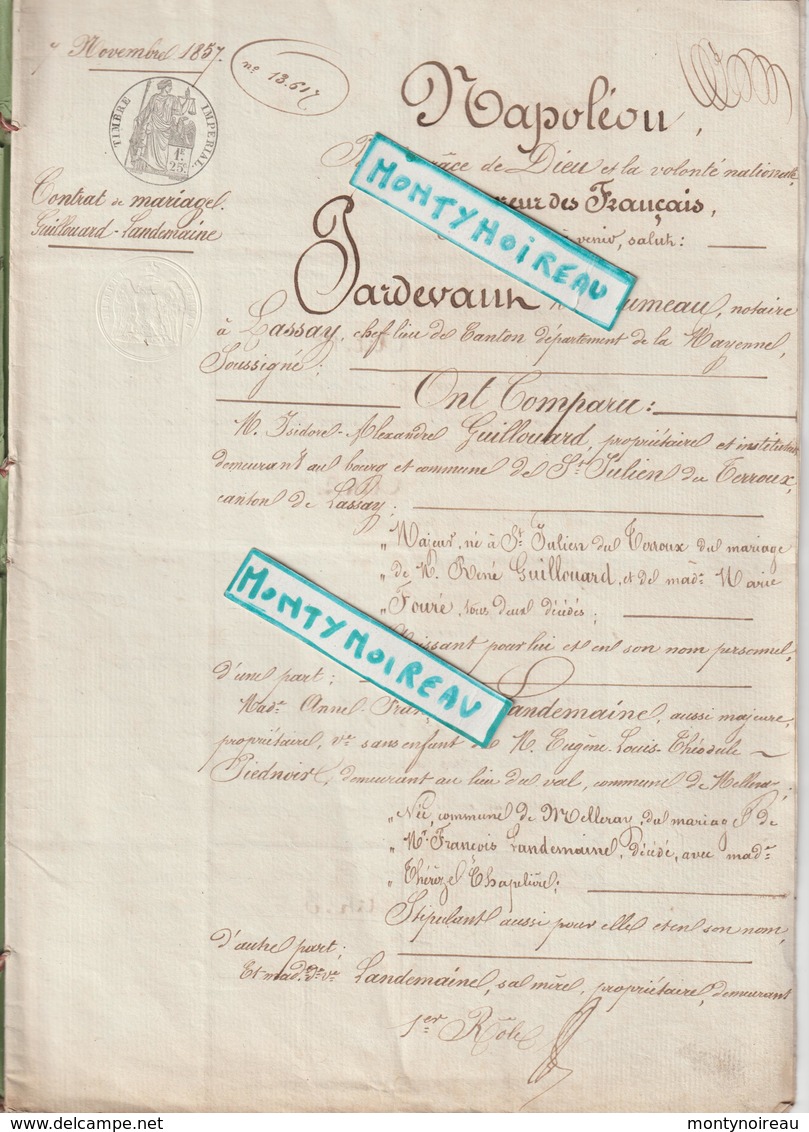 7 Novembre 1857.
nº 13.617
TIMBRE IMPERIAL
1F 25c
Contrat de mariage.
Guillouard - Landemaine
Napoléon,
de Dieu et la volonté nationale,
des Français,
venir, salut:
Pardevant umeau, notaire
à Lassay, chef lieu de Canton département de la Mayenne,
Soussigné;
Ont Comparu:
M. Isidore-Alexandre Guillouard, propriétaire et instituteur
demeurant au bourg et commune de St Julien du Terroux,
canton de Lassay;
„ Majeur, né à St Julien du Terroux du mariage
„ de M. René Guillouard, et de made Marie
„ Fouré, tous deux décédés;
pour lui et en son nom personnel,
d'une part;
Made Anne Fran Landemaine, aussi majeure,
propriétaire, ve sans enfant de M. Eugène-Louis-Théodule
Piednoir, demeurant au lieu du val, commune de Melleray;
„ Née, commune de Melleray, du mariage de
„ Mr François Landemaine, décédé, avec made
„ Thérèze Chapelière;
Stipulant aussi pour elle et en son nom,
d'autre part;
Et made De ve Landemaine, sa mère, propriétaire, demeurant
1er Rôle
MONTYNOIREAU
MONTYNOIREAU
montynoireau